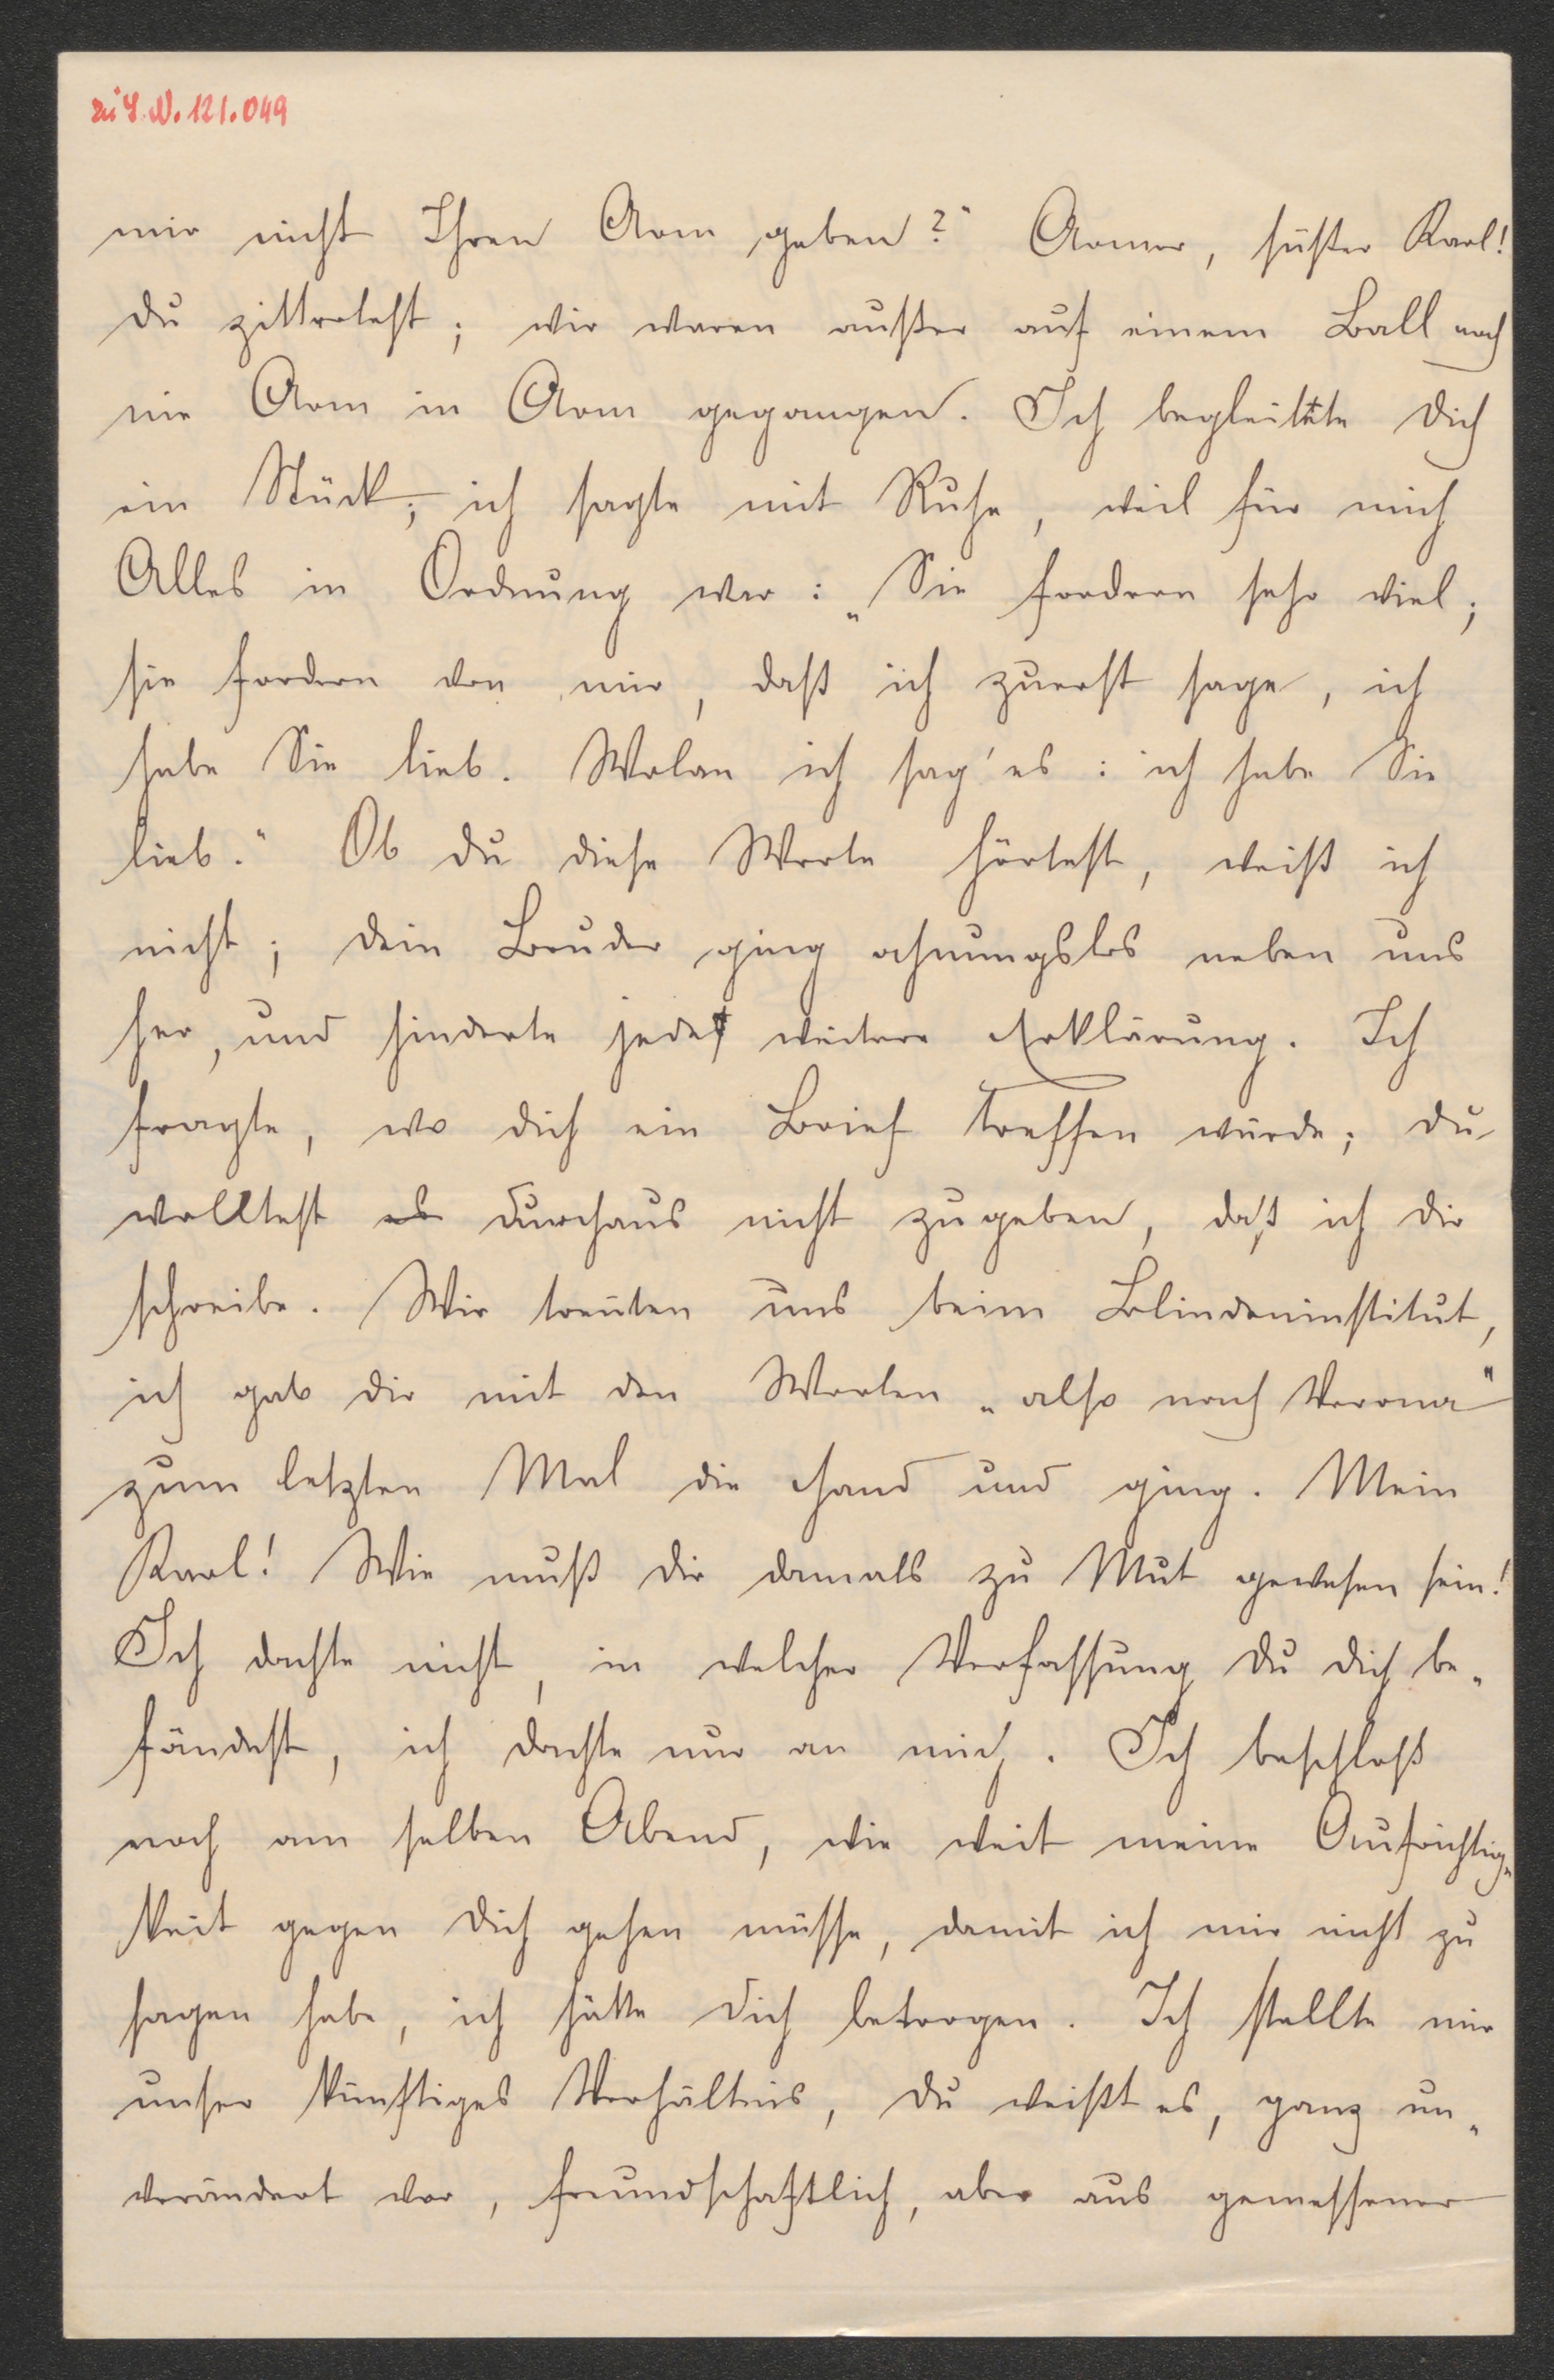 zu I.N. 121.049
mir nicht Ihren Arm geben?" Armer, süßer Karl!
du zittertest; wir waren außer auf einem Ball noch
nie Arm in Arm gegangen. Ich begleitete dich
ein Stück; ich sagte mit Ruhe, weil für mich
Alles in Ordnung war: „Sie fordern sehr viel;
sie fordern von mir, daß ich zuerst sage, ich
habe Sie lieb. Wolan ich sag' es: ich habe Sie
lieb." Ob du diese Worte hörtest, weiß ich
nicht; dein Bruder ging ahnungslos neben uns
her, und hinderte jede weitere Erklärung. Ich
fragte, wo dich ein Brief treffen würde; du
wolltest es durchaus nicht zugeben, daß ich dir
schreibe. Wir trennten uns beim Blindeninstitut,
ich gab dir mit den Worten „also nach Verona"
zum letzten Mal die Hand und ging. Mein
Karl! Wie muß dir damals zu Mut gewesen sein!
Ich dachte nicht, in welcher Verfassung du dich be„
fändest, ich dachte nur an mich. Ich beschloß
noch am selben Abend, wie weit meine Aufrichtig„
keit gegen dich gehen müsse, damit ich mir nicht zu
sagen habe, ich hätte dich betrogen. Ich stellte mir
unser künftiges Verhältnis, du weißt es, ganz un„
verändert vor, freundschaftlich, aber aus gemessener